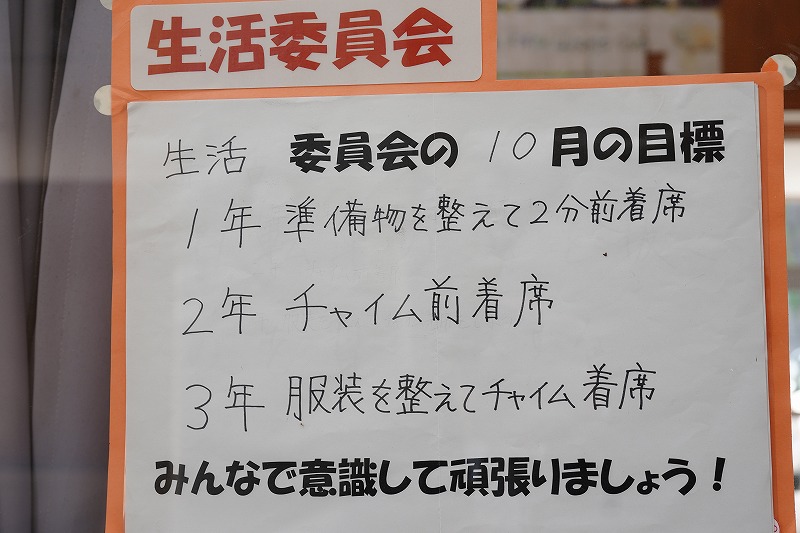 生活委員会
生活 委員会の 10 月の目標
1年 準備物を整えて2分前着席
2年 チャイム前着席
3年 服装を整えてチャイム着席
みんなで意識して頑張りましょう！